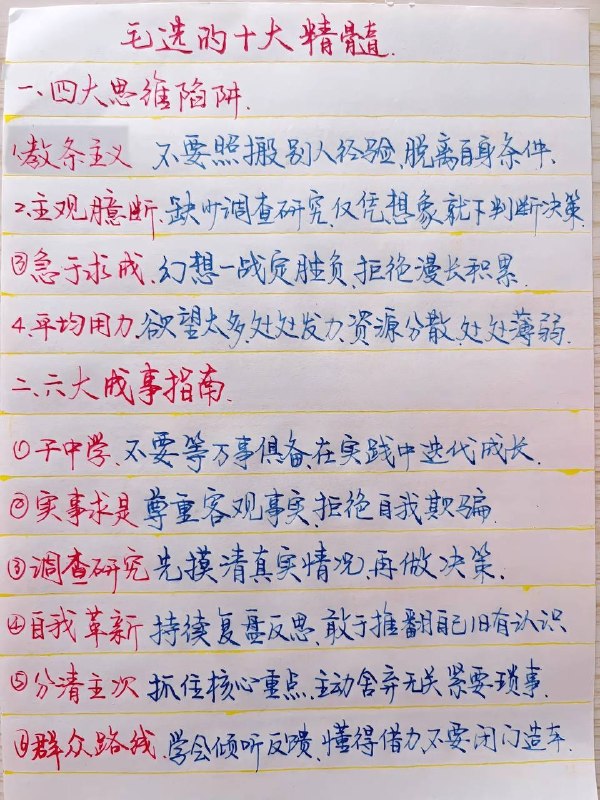 毛选的十大精髓.
一、四大思维陷阱.
1.教条主义 不要照搬别人经验、脱离自身条件.
2.主观臆断、缺少调查研究、仅凭想象就下判断决策
③急于求成、幻想一战定胜负、拒绝漫长积累.
4.平均用力、欲望太多、处处发力、资源分散、处处薄弱.
二、六大成事指南.
①干中学、不要等万事俱备、在实践中迭代成长.
②实事求是 尊重客观事实、拒绝自我欺骗.
③调查研究 先摸清真实情况、再做决策.
④自我革新 持续复盘反思、敢于推翻自己旧有认识
⑤分清主次 抓住核心重点、主动舍弃无关紧要琐事.
⑥群众路线、学会倾听反馈、懂得借力、不要闭门造车.